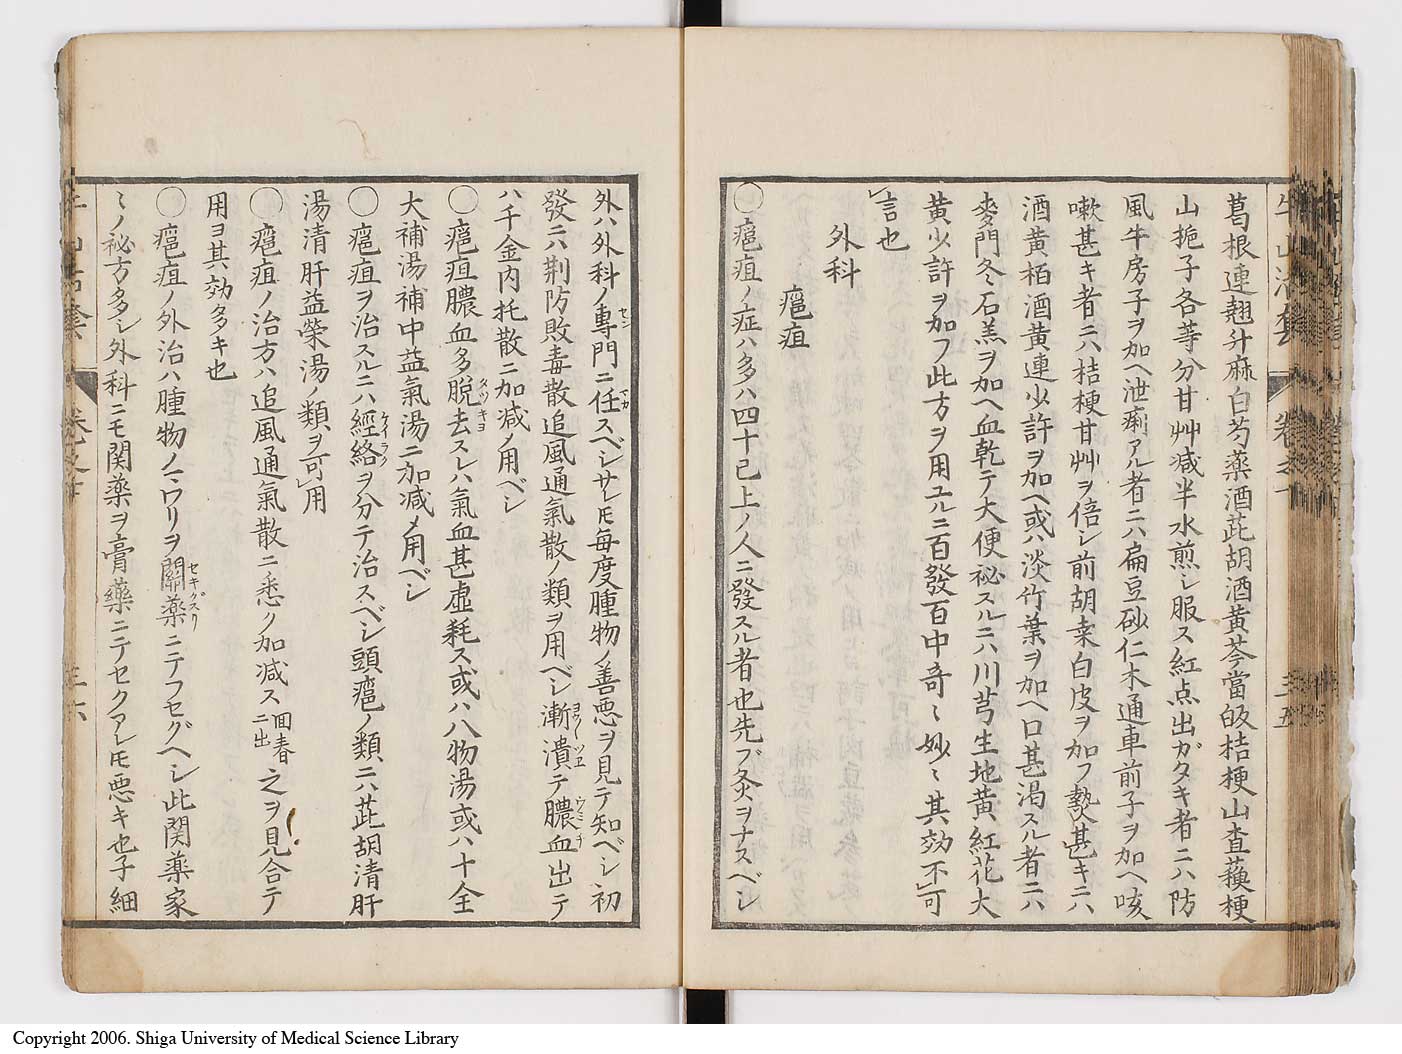 葛根連翹升麻白芍藥酒茈胡酒黄芩當皈桔梗山査蘓梗
山梔子各等分甘艸减半水煎シ服ス紅点出ガタキ者ニハ防
風牛房子ヲ加ヘ泄痢アル者ニハ扁豆砂仁木通車前子ヲ加ヘ咳
嗽甚キ者ニハ桔梗甘艸ヲ倍シ前胡桒白皮ヲ加フ𤍠甚キニハ
酒黄栢酒黄連少許ヲ加ヘ或ハ淡竹葉ヲ加ヘ口甚渇スル者ニハ
麥門冬石羔ヲ加ヘ血乾テ大便祕スルニハ川芎生地黄紅花大
黄少許ヲ加フ此方ヲ用ユルニ百發百中奇〻妙〻其効不可
言也
外科
瘟疽
○瘟疽ノ症ハ多ハ四十已上ノ人ニ發スル者也先ヅ灸ヲナスベシ
外ハ外科ノ專門ニ任スベシサレ𪜈毎度腫物ノ善悪ヲ見テ知ベシ初
發ニハ荆防敗毒散追風通氣散ノ類ヲ用ベシ漸潰テ膿血出テ
ハ千金内托散ニ加减ノ用ベシ
○瘟疽膿血多脱去スレハ氣血甚虚耗ス或ハ八物湯或ハ十全
大補湯補中益氣湯ニ加减〆用ベシ
○瘟疽ヲ治スルニハ經絡ヲ分テ治スベシ頭瘟ノ類ニハ茈胡清肝
湯清肝益榮湯ノ類ヲ可用
○瘟疽ノ治方ハ追風通氣散ニ悉ク加减ス回春ニ出之ヲ見合テ
用ヨ其効多キ也
○瘟疽ノ外治ハ腫物ノマワリヲ關藥ニテフセグヘシ此関薬家
〻ノ祕方多シ外科ニモ関薬ヲ膏藥ニテセクアレ𪜈悪キ也子細
Copyright 2006. Shiga University of Medical Science Library